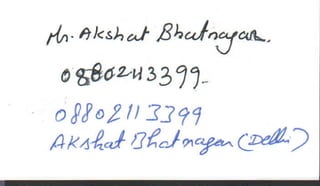 Mr. Akshat Bhatnagar.
08802113399.
08802113399
Akshat Bhatnagar (Delhi)